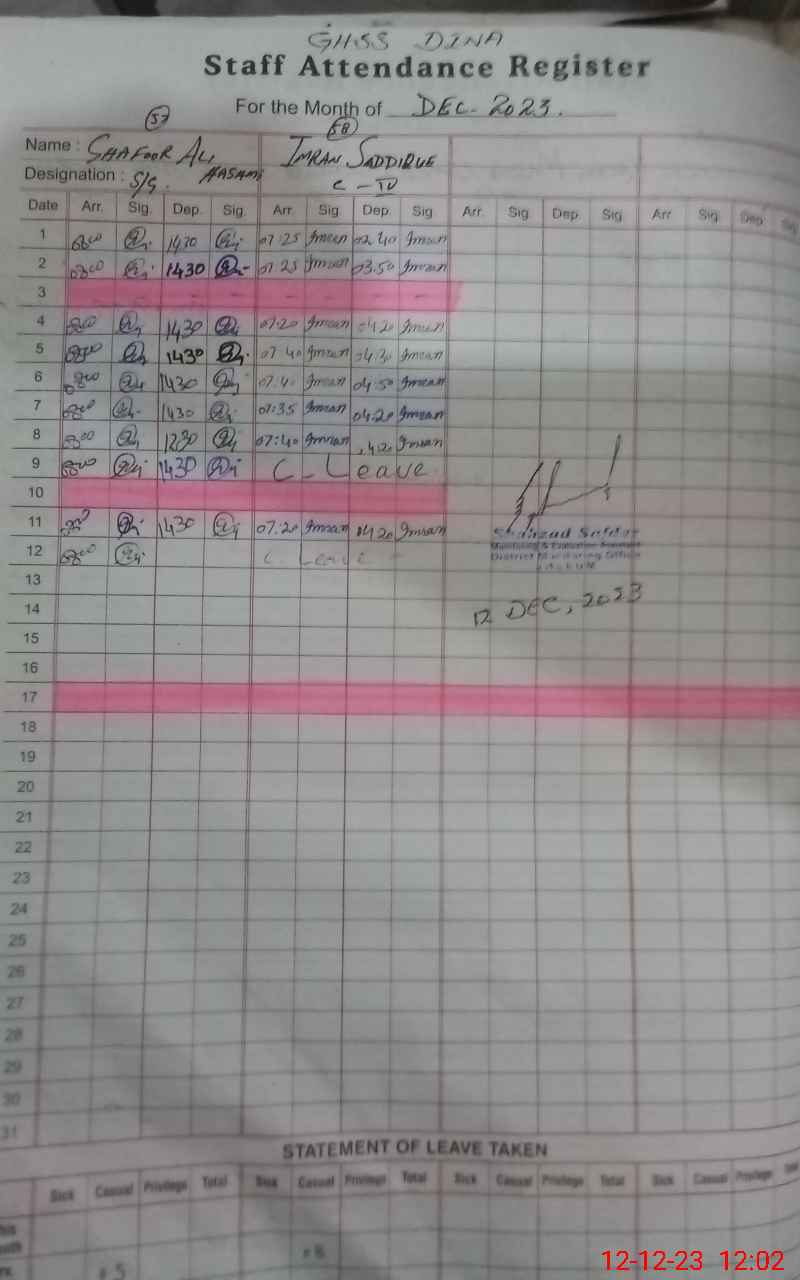 GHSS DINA
Staff Attendance Register
For the Month of DEC-2023.
57 58
Name : GHAFOOR ALI IMRAN SADDIQUE
Designation : S/G. AASAMI C-IV
Date Arr. Sig. Dep. Sig. Arr. Sig Dep. Sig Arr. Sig. Dep. Sig. Arr Sig Dep Sig
1 0800 1430 07:25 Imran 02:40 Imran
2 0800 1430 07:25 Imran 03:50 Imran
3 - - - - - -
4 800 1430 07:20 Imran 04:20 Imran
5 0800 1430 07:40 Imran 04:30 Imran
6 0800 1430 07:40 Imran 04:50 Imran
7 0800 1430 07:35 Imran 04:20 Imran
8 800 1230 07:40 Imran Imran
9 0800 1430 C_Leave
10
11 1430 07:20 Imran 04:20 Imran
12 0800 C Leave
Shahzad Safdar
Monitoring & Evaluation Assistant
District Monitoring Officer
JHELUM
13
12 DEC, 2023
14
15
16
17
18
19
20
21
22
23
24
25
26
27
28
29
30
31
STATEMENT OF LEAVE TAKEN
Sick Casual Privilege Total Sick Casual Privilege Total Sick Casual Privilege Total Sick Casual Privilege Total
12-12-23 12:02